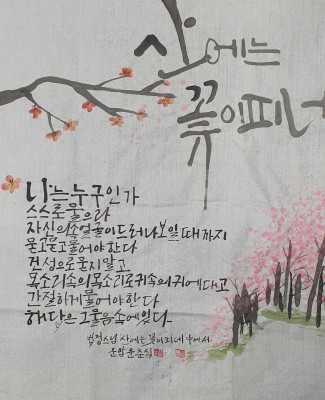 산에는
꽃이피네
나는누구인가
스스로물으라
자신의속얼굴이드러나보일때까지
묻고묻고물어야한다
건성으로묻지말고
목소리속의목소리로귀속의귀에대고
간절하게물어야한다
해답은그물음속에있다
법정스님 산에는 꽃이피네 中에서